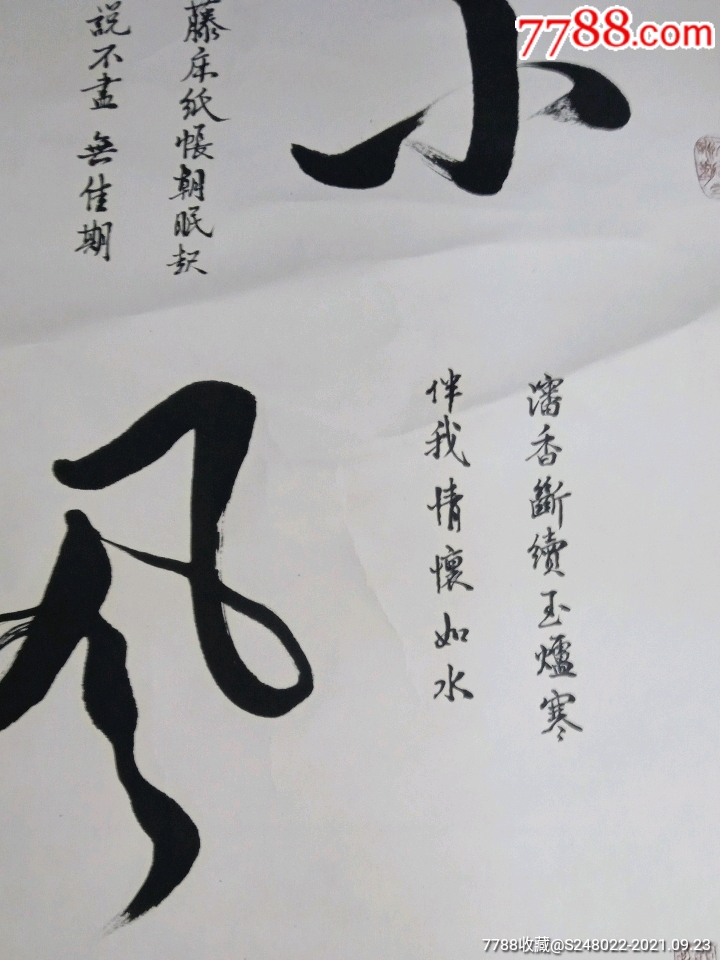 7788.com
小
风
藤床紙帳朝眠起
說不盡 無佳期
瀋香斷續玉爐寒
伴我情懷如水
7788收藏@S248022-2021.09.23